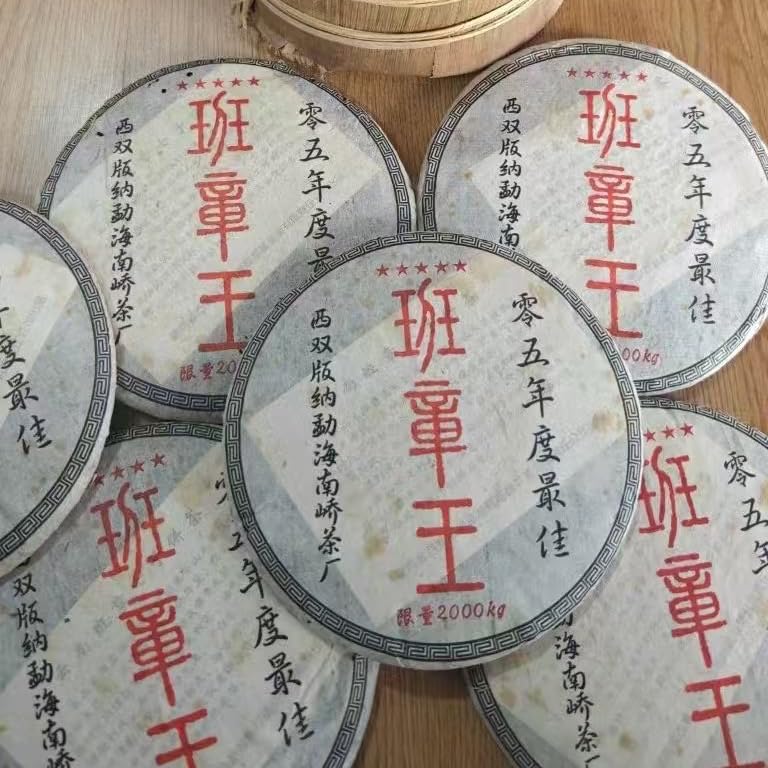 ★★★★★
零五年度最佳
班章王
西双版纳勐海南峤茶厂
限量2000kg
★★★★★
零五年度最
班章王
西双版纳勐海南峤茶厂
限量20
★★★★★
零五年度最佳
班章王
西双版纳勐海南
00kg
度最佳
★★★★
年度最佳
班章王
双版纳勐海南
★★★
零五年
班章王
海南峤茶厂